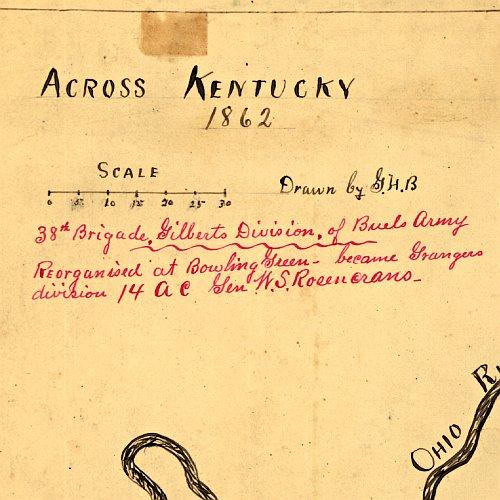 ACROSS KENTUCKY
1862
SCALE
0 5 10 15 20 25 30
Drawn by G.H.B
38th Brigade, Gilberts Division, of Buels Army
Reorganised at Bowling Green - became Grangers
division 14 A C Gen. W. S. Rosencrans -
OHIO RI